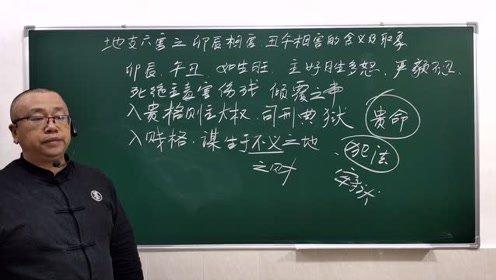 地支六害之卯辰相害.丑午相害的含义及取象
卯辰、午丑.如生旺.主好胜多怒.严毅不忍.
死绝主毒害伤残 倾覆之事
入贵格则主大权.司刑典狱 贵命
入贱格.谋生于不义之地 犯法
之财